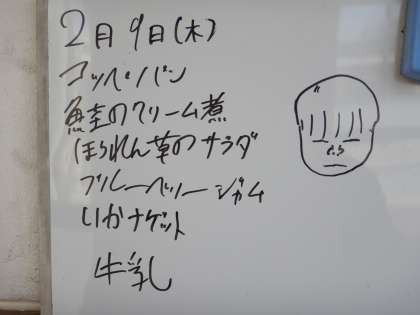 2月9日(木)
コッペパン
鮭のクリーム煮
ほうれん草のサラダ
ブルーベリージャム
いかナゲット
牛乳